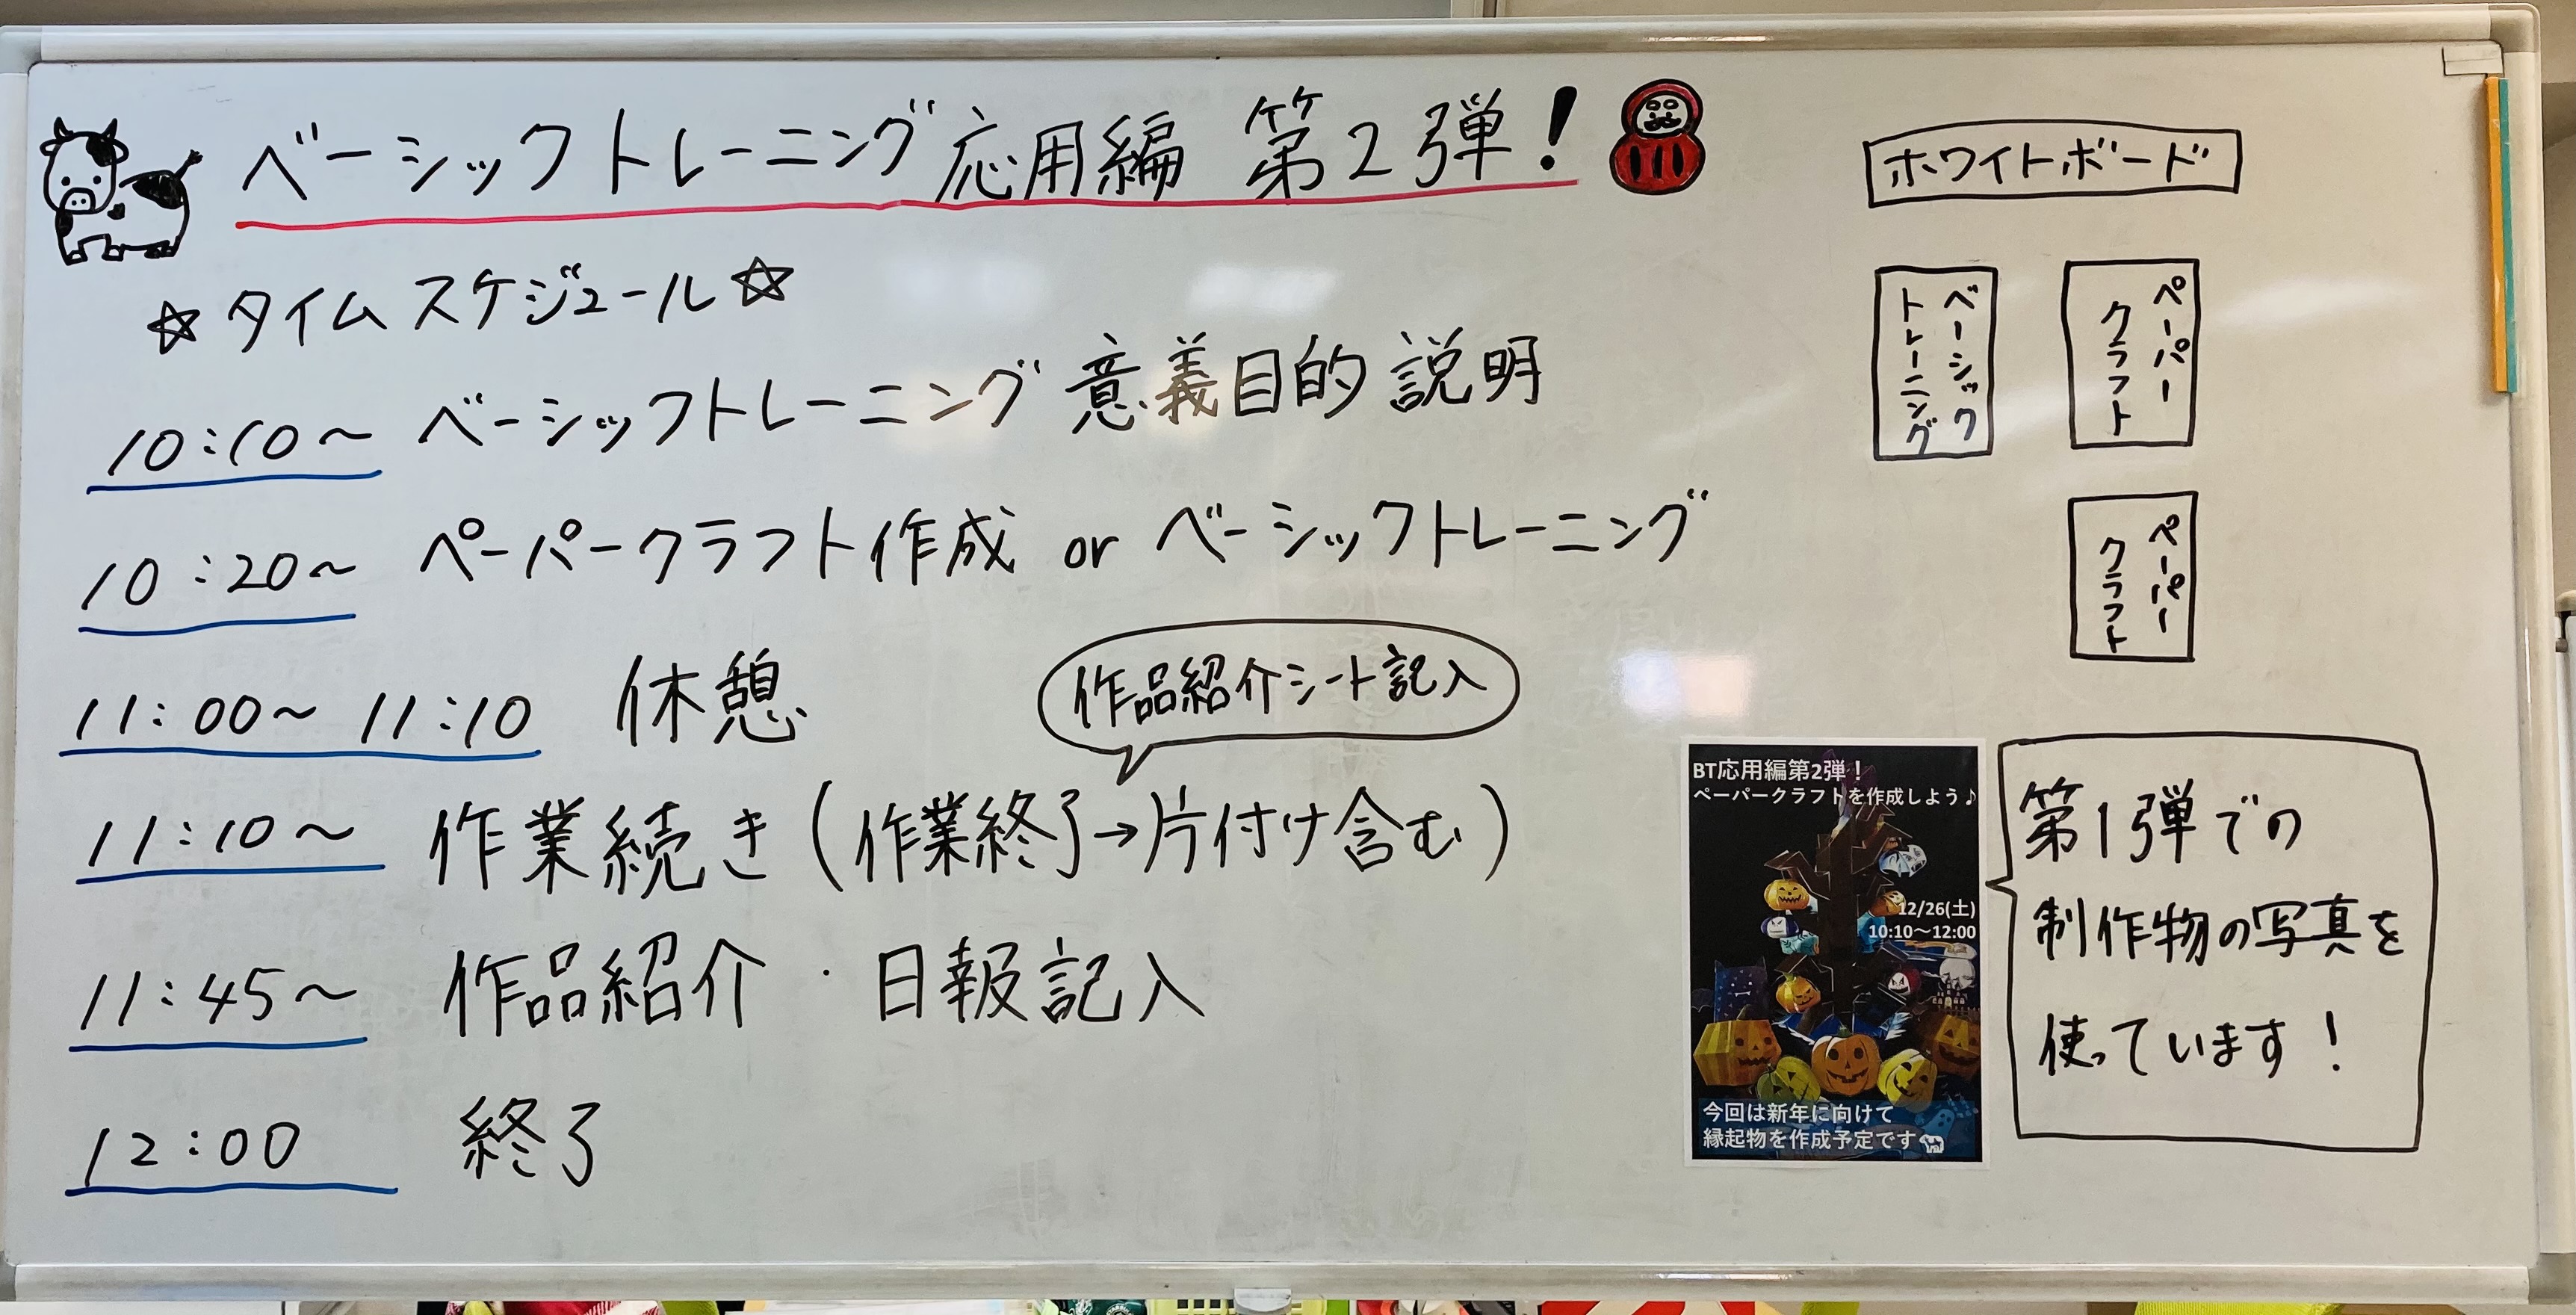 ベーシックトレーニング応用編 第2弾!
☆タイムスケジュール☆
10:10〜 ベーシックトレーニング意義目的説明
10:20〜 ペーパークラフト作成 or ベーシックトレーニング
11:00〜11:10 休憩
作品紹介シート記入
11:10〜 作業続き(作業終了→片付け含む)
11:45〜 作品紹介・日報記入
12:00 終了
ホワイトボード
ベーシック
トレーニング
ペーパー
クラフト
ペーパー
クラフト
BT応用編第2弾!
ペーパークラフトを作成しよう♪
12/26(土)
10:10〜12:00
今回は新年に向けて
縁起物を作成予定です
第1弾での
制作物の写真を
使っています!